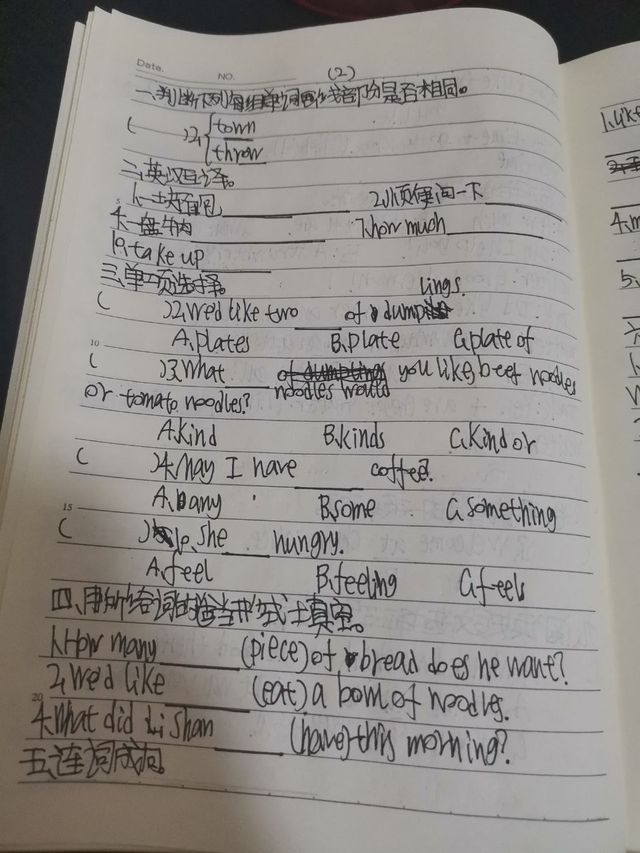 Date.
NO.
(2)
一、判断下列每组单词画线部分是否相同。
( )2、{town
throw
二、英汉互译。
1、一块面包________ 2、顺便问一下________
4、一盘牛肉________ 7、how much________
10、take up________
三、单项选择。
lings.
( )2、We'd like two ____ of dump
A、plates B、plate C、plate of
( )3、What ____ of dumplings you like, beef noodles
noodles would
or tomato noodles?
A、kind B、kinds C、kind of
( )4、May I have ____ coffee?
A、any B、some C、something
( ) she ____ hungry.
A、feel B、feeling C、feels
四、用所给词的适当形式填空。
1、How many ____ (piece) of bread does he want?
2、We'd like ____ (eat) a bowl of noodles.
4、What did Li Shan ____ (have) this morning?
五、连词成句。
5
10
15
20